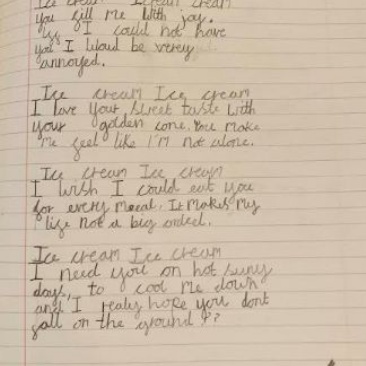 Ice cream Icream cream
you fill me With joy.
If I could not have
you I Would be verey
annoyed.
Ice cream Ice cream
I love your sweet taste with
your golden cone. You make
me feel like I'm not alone.
Ice cream Ice cream
I wish I could eat you
for every meal. It makes my
life not a big ordeal.
Ice cream Ice cream
I need you on hot suny
days, to cool me down
and I realy hope you dont
fall on the ground!?